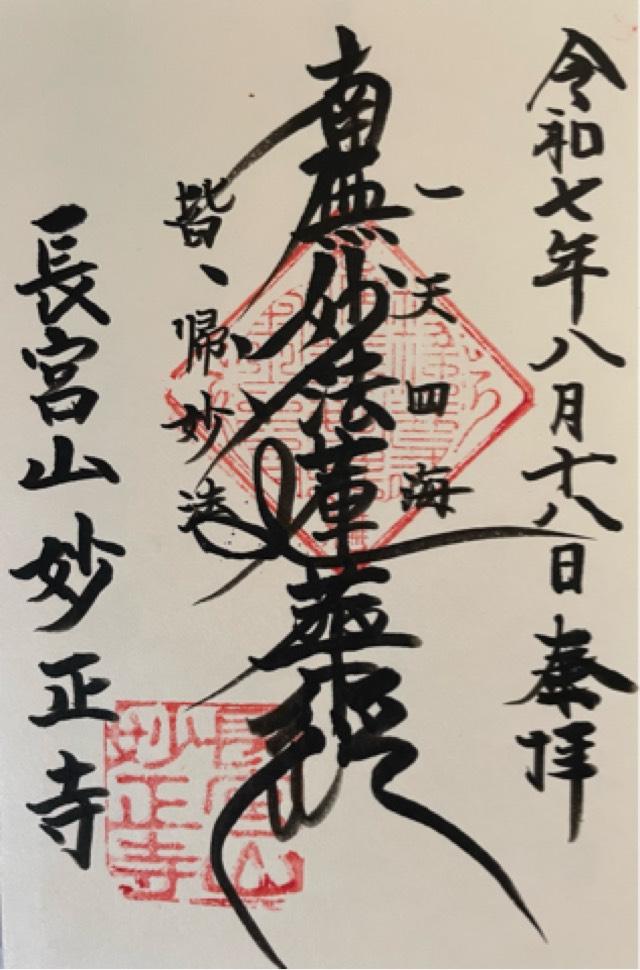 令和七年八月十八日 奉拝
一天四海
南無妙法蓮華経
皆、帰妙法
長宮山 妙正寺
長宮山
妙正寺